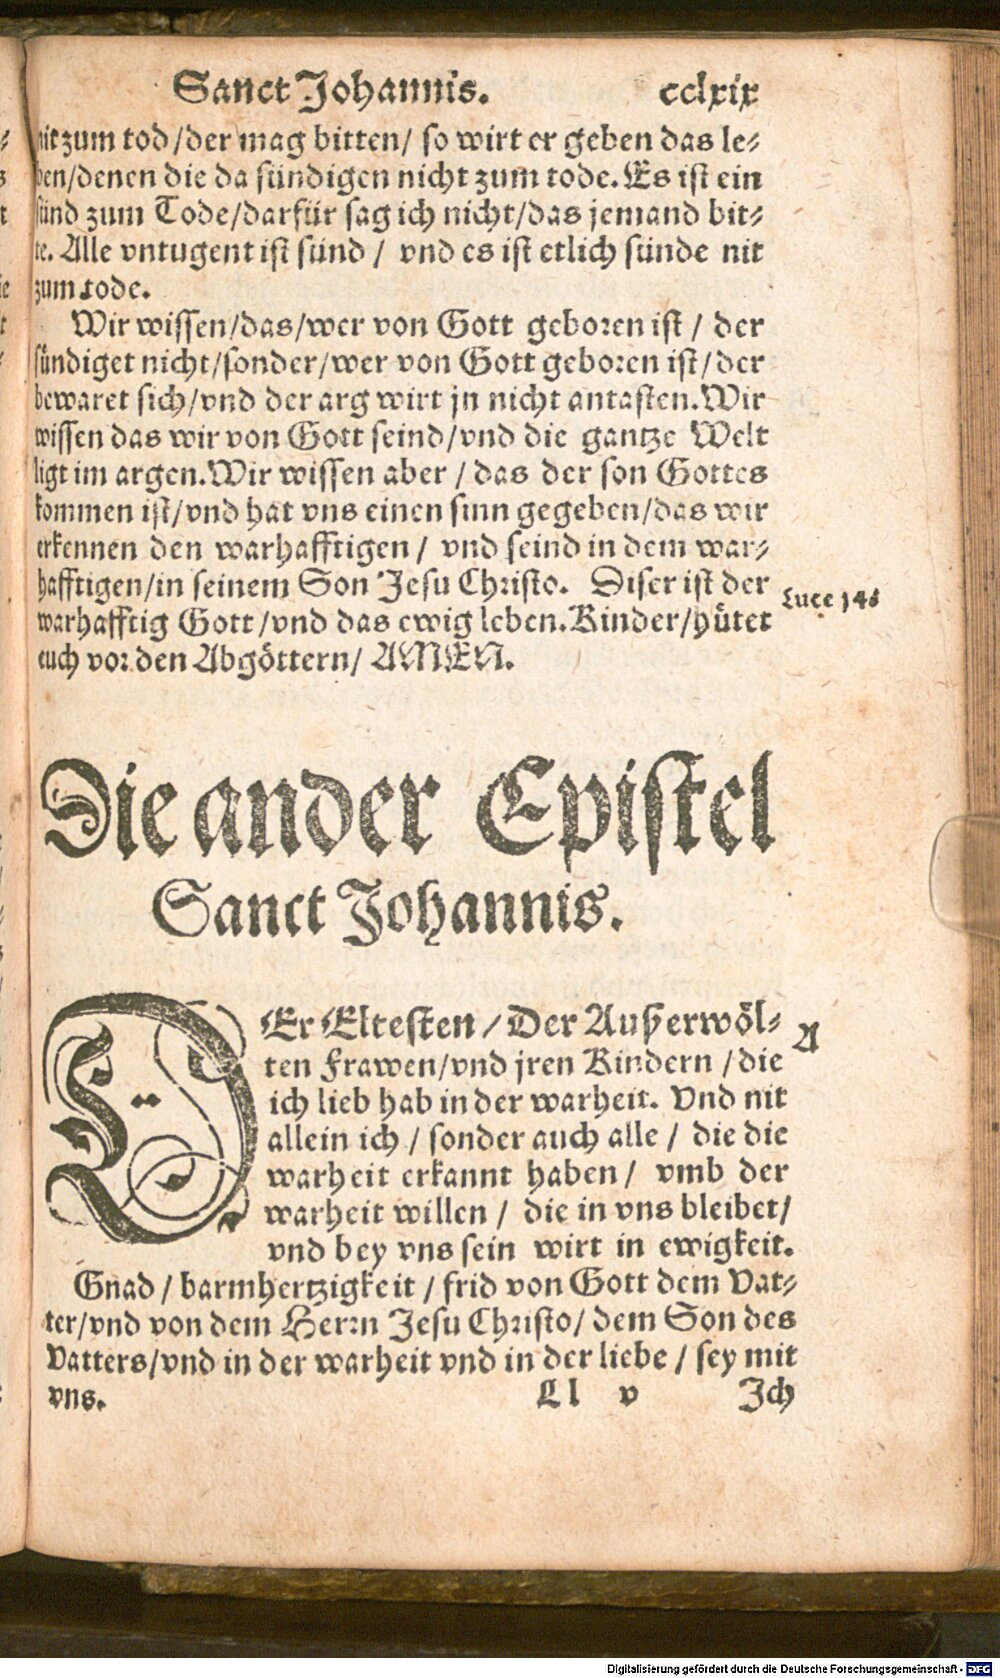 Sanct Johannis. cclxix
nit zum tod/der mag bitten/ so wirt er geben das le⸗
ben/denen die da sündigen nicht zum tode. Es ist ein
sünd zum Tode/darfür sag ich nicht/das jemand bit⸗
te. Alle vntugent ist sünd / vnd es ist etlich sünde nit
zum tode.
Wir wissen/das/wer von Gott geboren ist / der
sündiget nicht/sonder/wer von Gott geboren ist/der
bewaret sich/vnd der arg wirt jn nicht antasten. Wir
wissen das wir von Gott seind/vnd die gantze Welt
ligt im argen. Wir wissen aber / das der son Gottes
kommen ist/vnd hat vns einen sinn gegeben/das wir
erkennen den warhafftigen / vnd seind in dem war⸗
hafftigen/in seinem Son Jesu Christo. Diser ist der
warhafftig Gott/vnd das ewig leben. Kinder/hütet
euch vor den Abgöttern/ AMEN.
Luce
Die ander Epistel
Sanct Johannis.
DEr Eltesten / Der Außerwöl⸗
ten Frawen/vnd jren Kindern / die
ich lieb hab in der warheit. Vnd nit
allein ich / sonder auch alle / die die
warheit erkannt haben / vmb der
warheit willen / die in vns bleibet/
vnd bey vns sein wirt in ewigkeit.
A
Gnad / barmhertzigkeit / frid von Gott dem Vat⸗
ter/vnd von dem Herrn Jesu Christo/ dem Son des
Vatters/vnd in der warheit vnd in der liebe / sey mit
vns. Ll v Ich
Digitalisierung gefördert durch die Deutsche Forschungsgemeinschaft - DFG